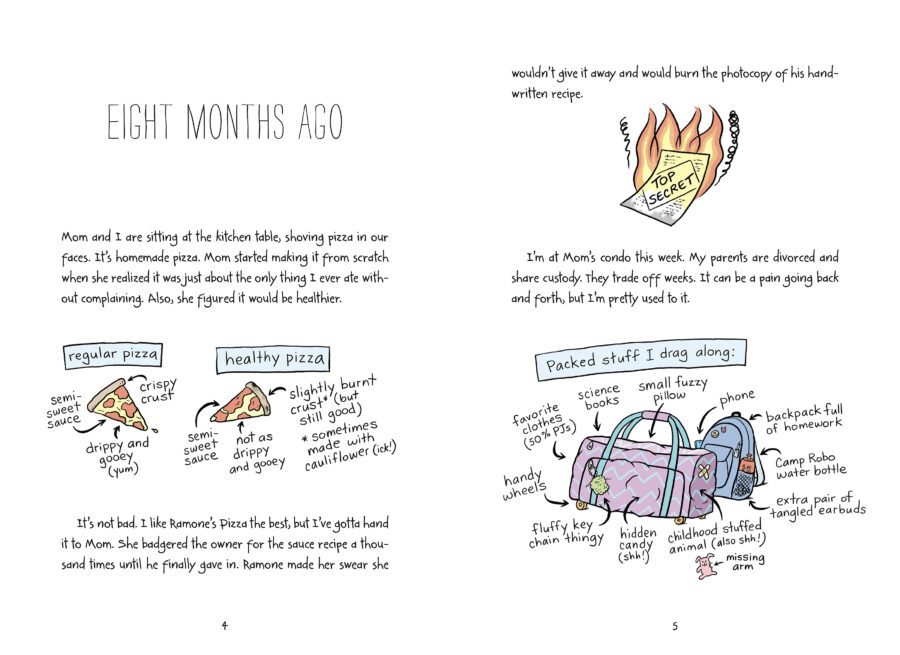 EIGHT MONTHS AGO
Mom and I are sitting at the kitchen table, shoving pizza in our
faces. It's homemade pizza. Mom started making it from scratch
when she realized it was just about the only thing I ever ate with-
out complaining. Also, she figured it would be healthier.
regular pizza
semi-
sweet
sauce
crispy
crust
drippy and
gooey
(yum)
healthy pizza
semi-
sweet
sauce
not as
drippy
and gooey
slightly burnt
crust* (but
still good)
* sometimes
made with
cauliflower (ick!)
It's not bad. I like Ramone's Pizza the best, but I've gotta hand
it to Mom. She badgered the owner for the sauce recipe a thou-
sand times until he finally gave in. Ramone made her swear she
4
wouldn't give it away and would burn the photocopy of his hand-
written recipe.
TOP
SECRET
I'm at Mom's condo this week. My parents are divorced and
share custody. They trade off weeks. It can be a pain going back
and forth, but I'm pretty used to it.
Packed stuff I drag along:
favorite
clothes
(50% PJs)
science
books
small fuzzy
pillow
phone
backpack full
of homework
Camp Robo
water bottle
extra pair of
tangled earbuds
handy
wheels
fluffy key
chain thingy
hidden
candy
(shh!)
childhood stuffed
animal (also shh!)
missing
arm
5